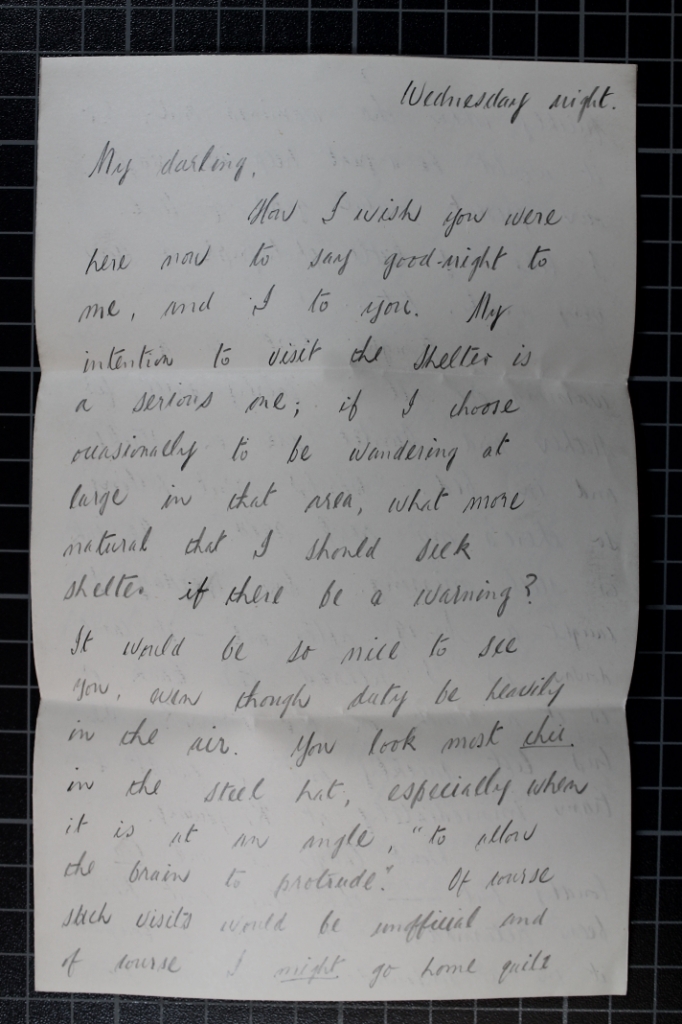 Wednesday night.
My darling,
How I wish you were
here now to say good-night to
me, and I to you. My
intention to visit the shelter is
a serious one; if I choose
occasionally to be wandering at
large in that area, what more
natural that I should seek
shelter if there be a warning?
It would be so nice to see
you, even though duty be heavily
in the air. You look most chic
in the steel hat, especially when
it is at an angle, "to allow
the brain to protrude." Of course
such visits would be unofficial and
of course I might go home quite